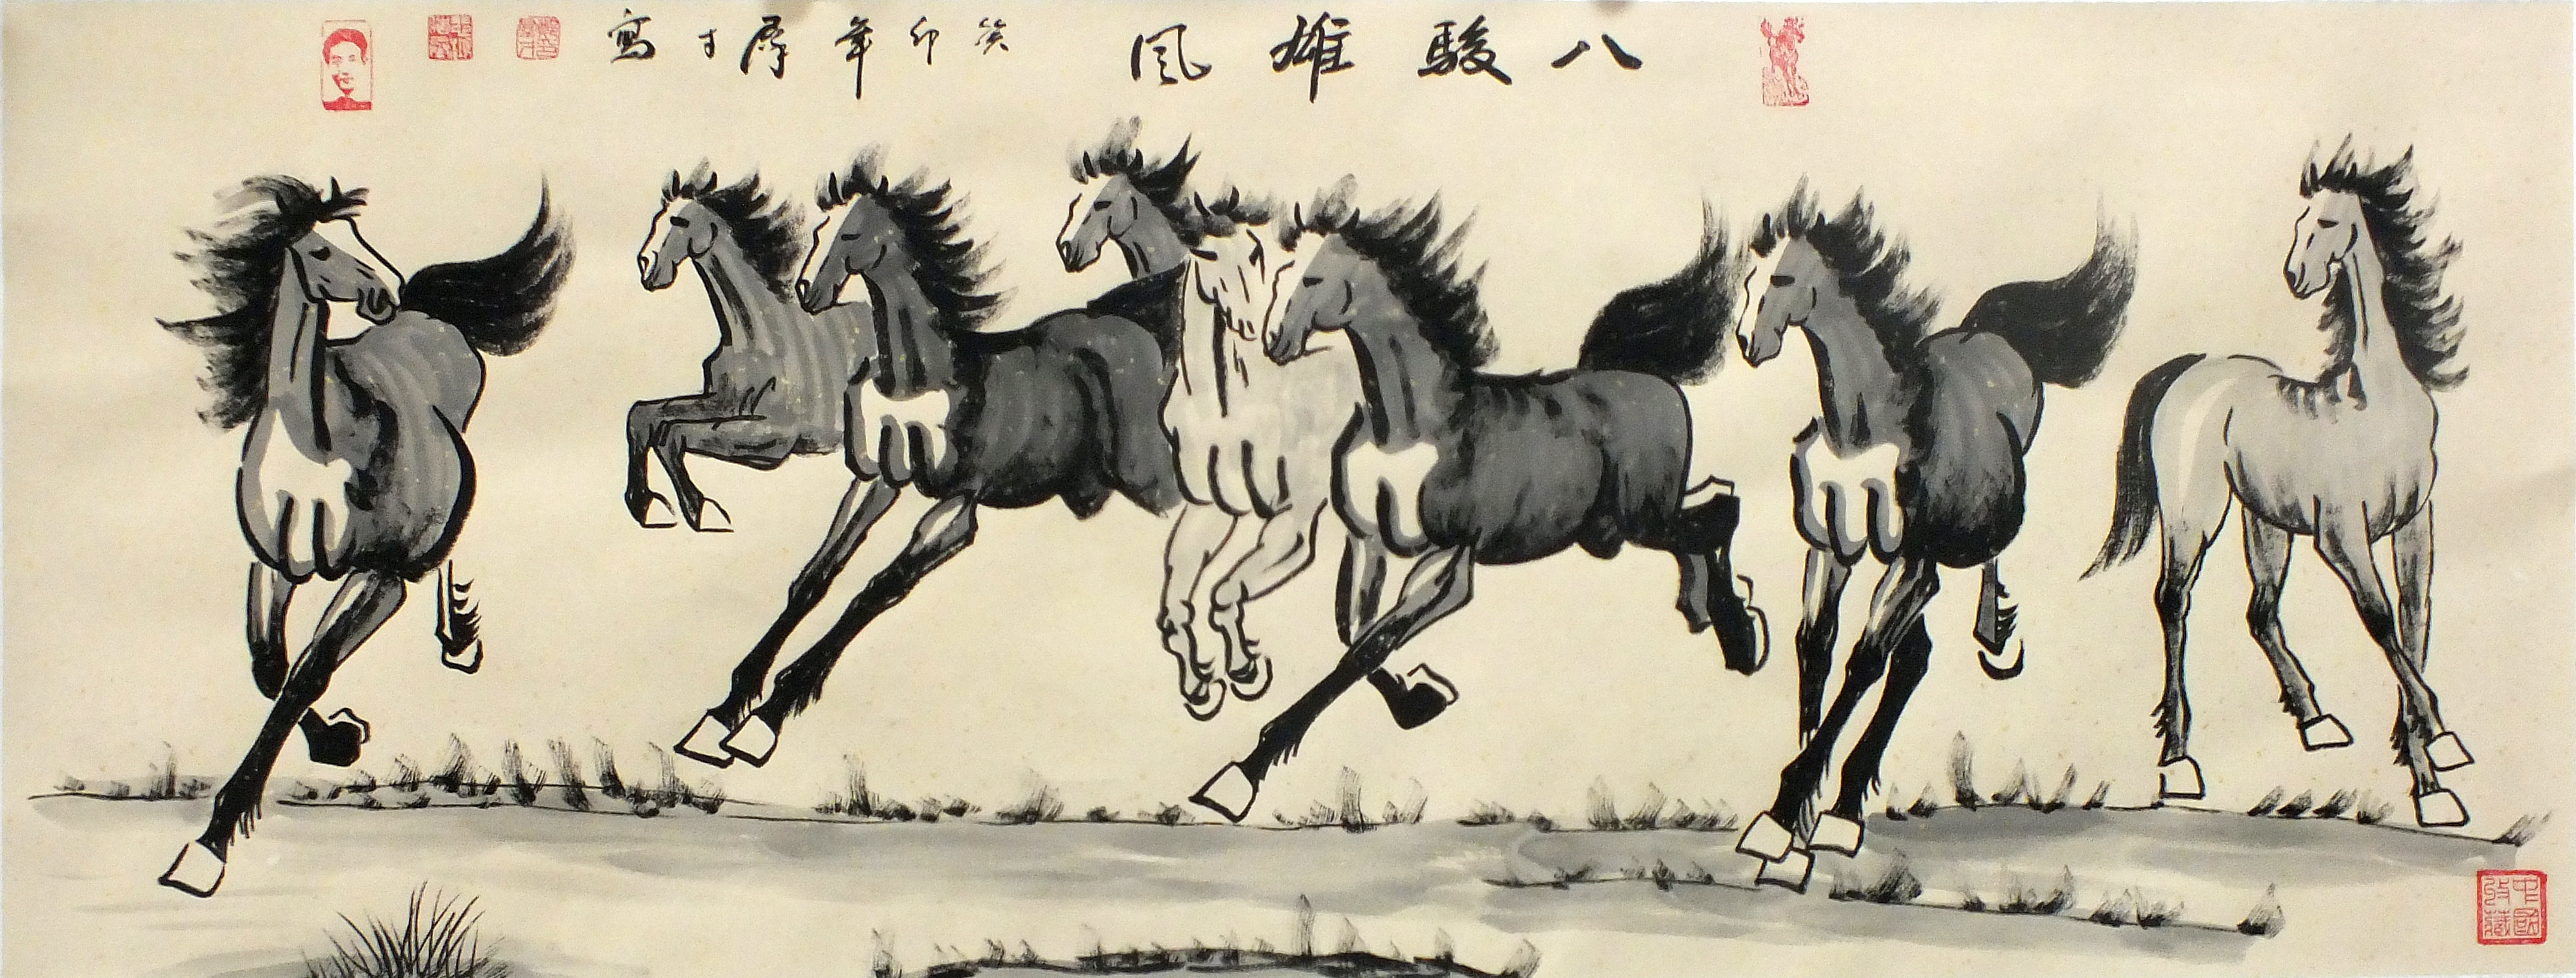 八駿雄風
癸卯年厚才寫
中國
收藏